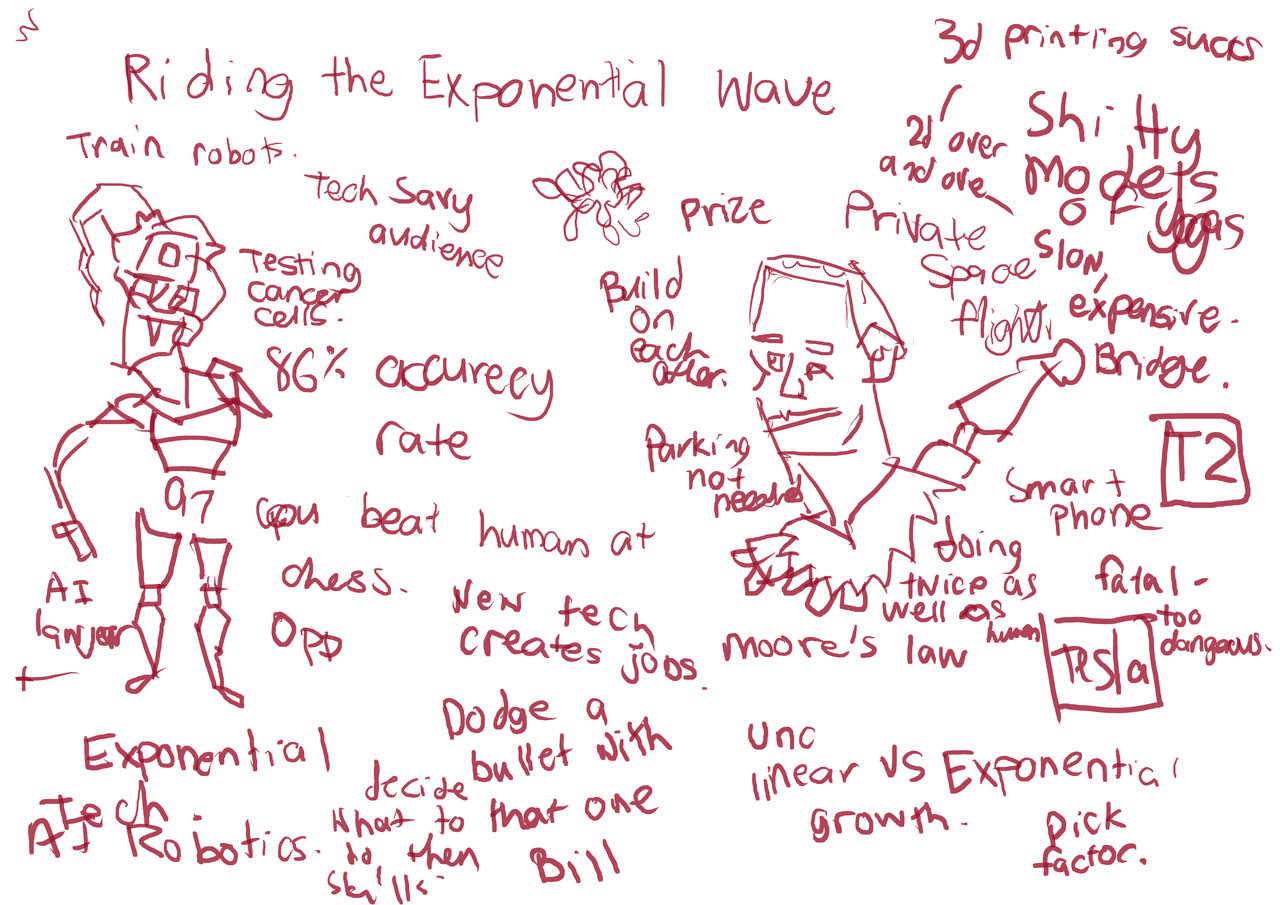 3d printing sucks
Riding the Exponential Wave
2d over
and ove
Shitty
Models
of yoga
Train robots.
Tech Savy
audience
prize
Private
Space
flight
Slow,
expensive.
Bridge.
Testing
cancer
cells.
Build
on
each
other.
86% accurecy
rate
Parking
not
needed
T2
Smart
phone
97
beat human at
chess.
Opp
AI
lawyer
New tech
creates jobs.
doing
twice as
well as
human
moore's law
fatal -
too
dangeous.
Tesla
Exponential
Tech.
AI Robotics.
decide
what to
do then
skills.
Dodge a
bullet with
that one
Bill
Unc
linear vs Exponential
growth.
pick
factor.